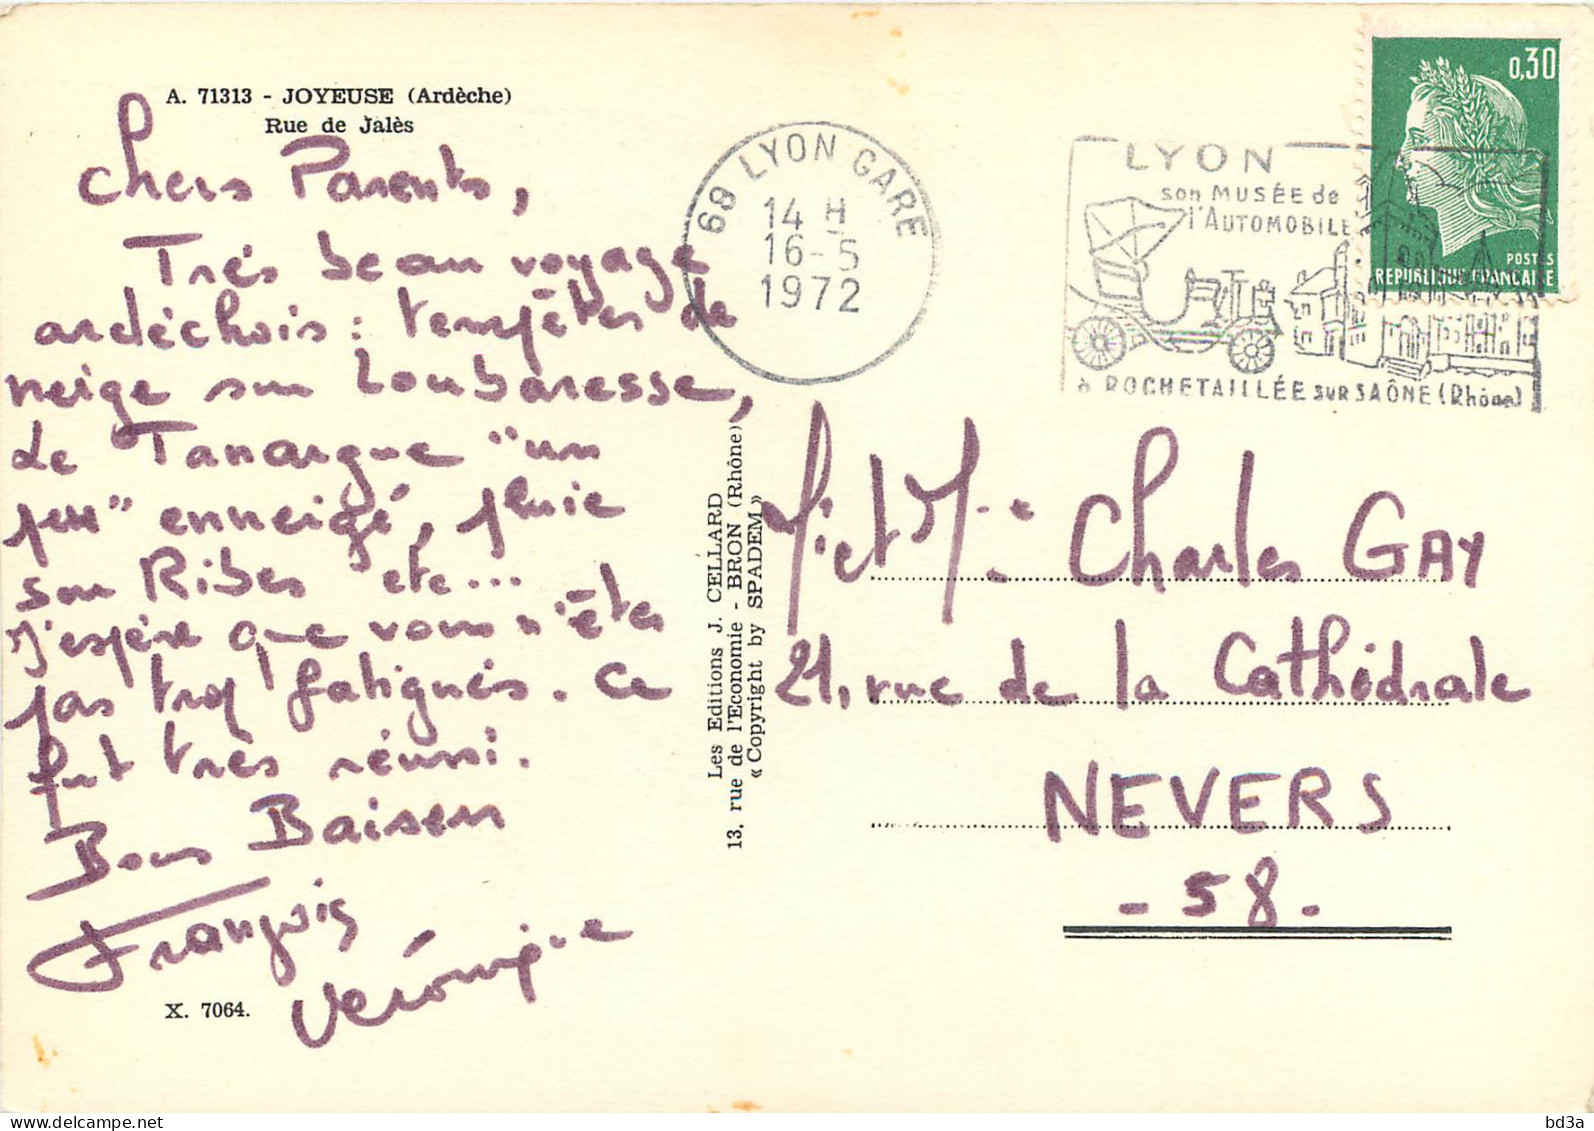 A. 71313 - JOYEUSE (Ardèche)
Rue de Jalès
Chers Parents,
Très beau voyage
ardéchois : tempêtes de
neige sur Loubaresse,
Le Tanargue "un
peu" enneigé, pluie
sur Ribes etc...
J'espère que vous n'êtes
pas trop fatigués. Ce
fut très réussi.
Bons Baisers
François
Véronique
X. 7064.
Les Editions J. CELLARD
13, rue de l'Economie - BRON (Rhône)
« Copyright by SPADEM »
69 LYON GARE
14 H
16-5
1972
LYON
son MUSÉE de
l'AUTOMOBILE
à ROCHETAILLÉE SUR SAÔNE (Rhône)
0,30
POSTES
REPUBLIQUE FRANCAISE
Mr et Me Charles GAY
21, rue de la Cathédrale
NEVERS
- 58 -
bd3a